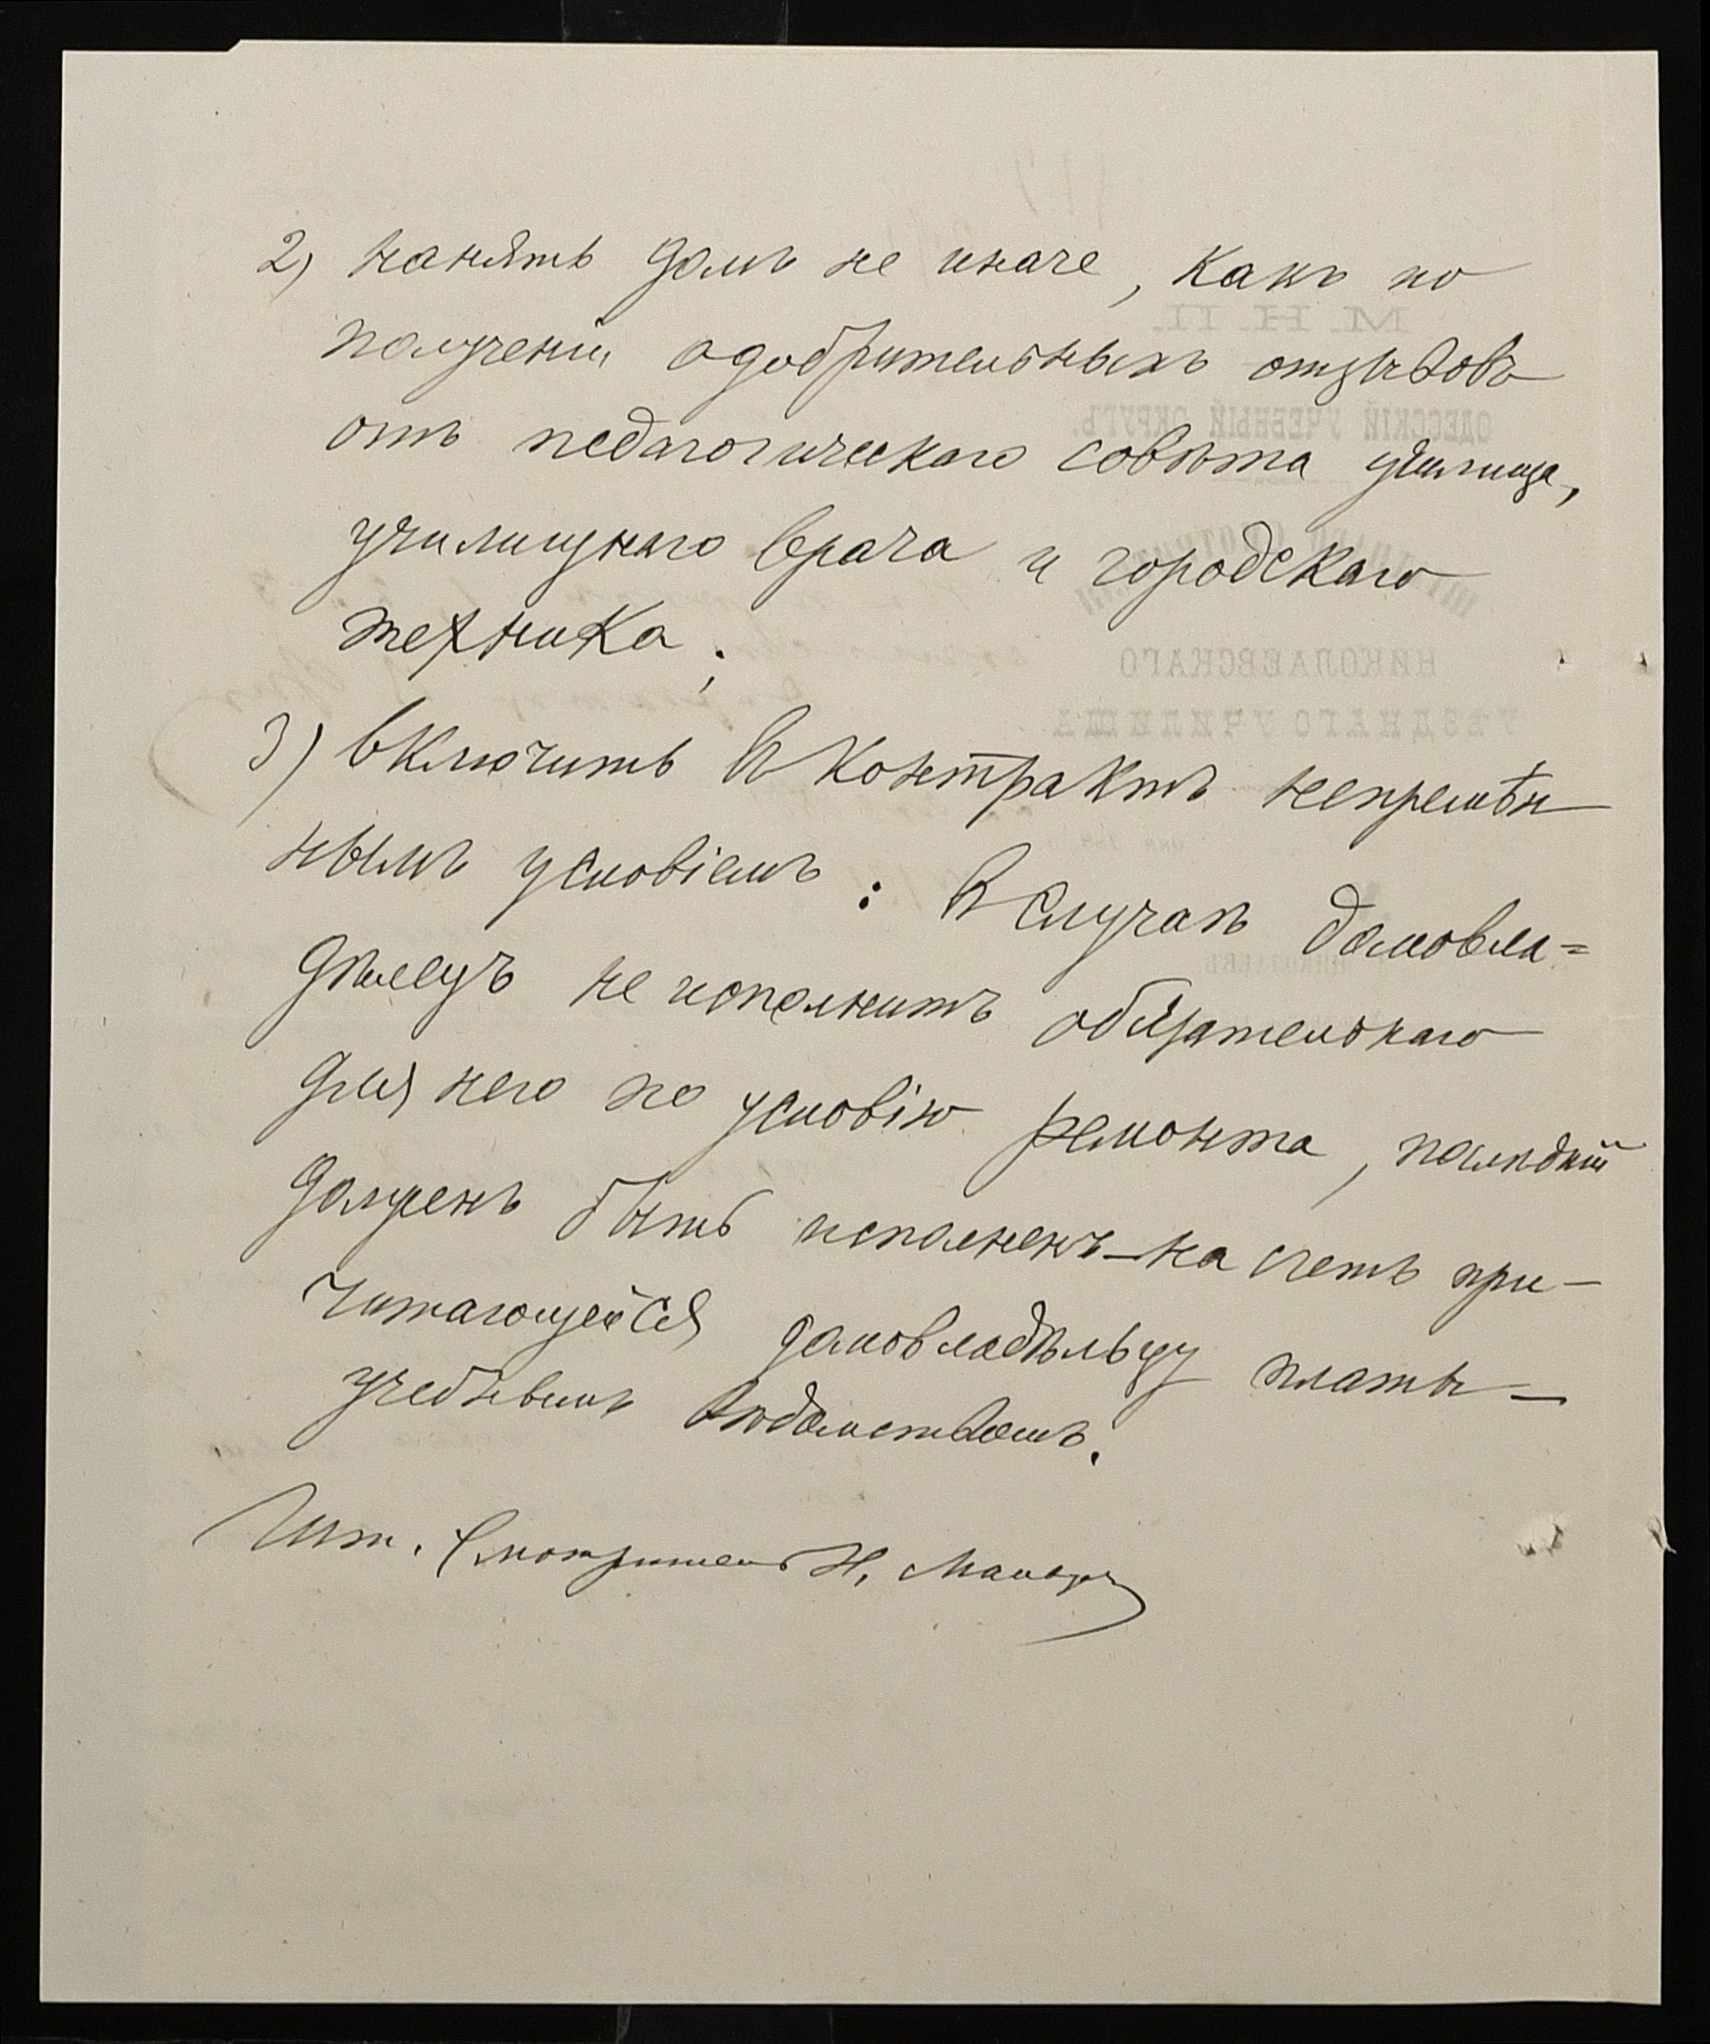 2) нанять домъ не иначе, какъ по
полученіи одобрительныхъ отзывовъ
отъ педагогическаго совѣта училища,
училищнаго врача и городскаго
техника;
3) включить въ контрактъ непремѣн
нымъ условіемъ: въ случаѣ домовла=
дѣлецъ не исполнитъ обязательнаго
для него по условію ремонта, послѣдній
долженъ быть исполненъ – на счетъ при–
читающейся домовладѣльцу платы –
учебнымъ вѣдомствомъ.
Шт. Смотритель Н.
М. Н. П.
ОДЕССКІЙ УЧЕБНЫЙ ОКРУГЪ.
НИКОЛАЕВСКАГО
УѢЗДНАГО УЧИЛИЩА